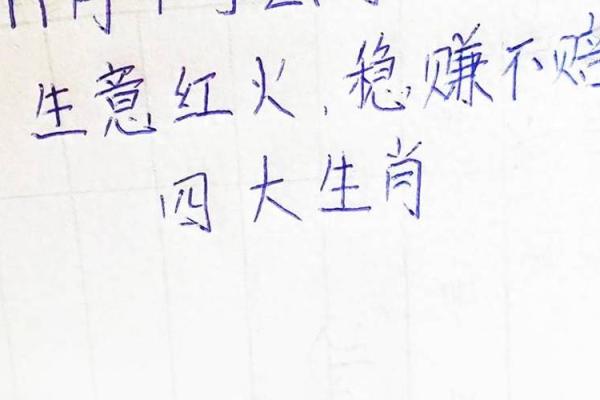 生意红火，稳赚不赔
四大生肖